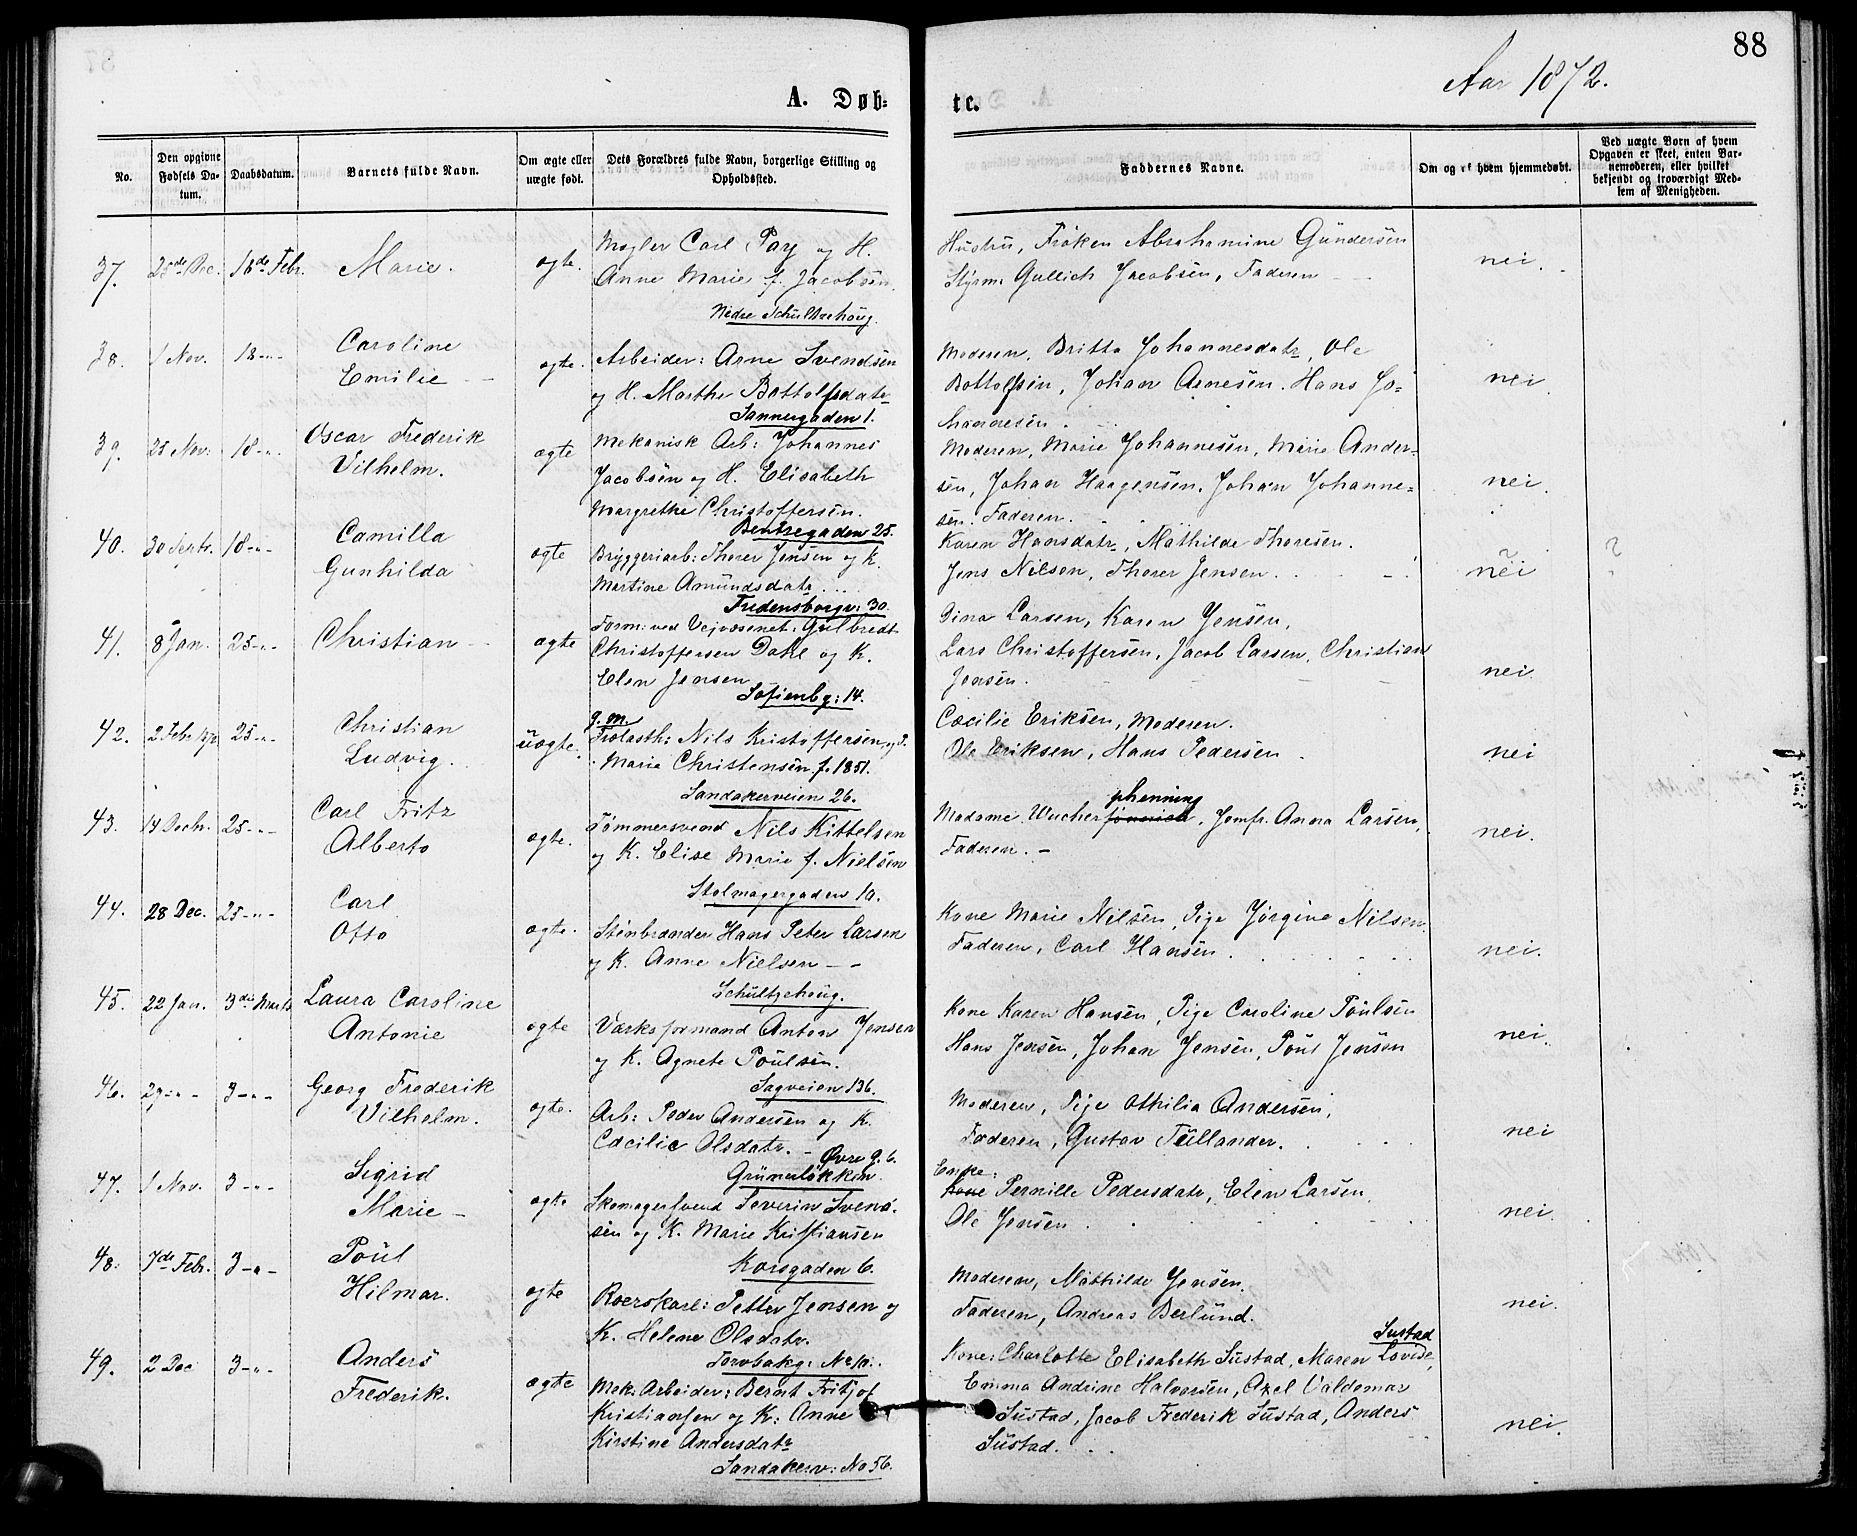 88
Aar 1872.
A. Døb=
te.
No.
Den opgivne Fødsels Da-tum.
Daabsdatum.
Barnets fulde Navn.
Om ægte eller uægte født.
Dets Forældres fulde Navn, borgerlige Stilling og Opholdssted.
Faddernes Navne.
Om og af hvem hjemmedøbt.
Ved uægte Børn af hvem Opgaven er skeet, enten Bar-nemoderen, eller hvilket bekjendt og troværdigt Med-lem af Menigheden.
37. 18de Febr. Marie. ægte.
Mægler Carl Pay og H.
Anne Marie f. Jacobsen.
Nedre Schultzehoug.
Hustru, Frøken Abrahamine Gundersen
Styrm. Gullich Jacobsen, Faderen
nei.
38. 1 Nov. 18-"- Caroline
Emilie ægte.
Arbeider: Arne Svendsen
og H. Marthe Bottolfsdatr
Sannergaden 1.
Moderen, Britta Johannesdatr, Ole
Bottolfsen, Johan Arnesen. Hans Jo=
hannesen.
nei
39. 25 Nov. 18-"- Oscar Frederik
Vilhelm. ægte
Mekanisk Arb: Johannes
Jacobsen og H. Elisabeth
Margrethe Christoffersen.
Bentsegaden 25.
Moderen, Marie Johannesen, Marie Ander-
sen, Johan Haagensen, Johan Johanne=
sen. Faderen.
nei.
40. 30 Septr. 18-"- Camilla
Gunhilda ægte
Bryggeriarb: Thorer Jensen og K.
Martine Amundsdatr
Fredensborgv: 30.
Karen Hansdatr, Mathilde Thoresen.
Jens Nilsen, Thorer Jensen.
nei
?
41. 8 Jan. 25-"- Christian ægte
Form: ved Vejvæsenet: Gulbredt
Christoffersen Dahl og K.
Elen Jensen
Sofienbg: 14.
Dina Larsen, Karen Jensen,
Lars Christoffersen, Jacob Larsen, Christian
Jensen.
nei
42. 2 Febr 25-"- Christian
Ludvig. uægte.
g.m.
Nils Kristoffersen og P.
Marie Christensen f. 1851.
Sandakerveien 26.
Cæcilie Eriksen, Moderen.
Ole Eriksen, Hans Pedersen
nei
43. 14 Decbr. 25-"- Carl Fritz
Alberto ægte.
Tømmersvend Nils Kittelsen
og K. Elise Marie f. Nielsen
Stolmagergaden 10.
phenning
Madame Wucher, Jomfr. Anna Larsen,
Faderen.
nei.
44. 28 Dec. 25-"- Carl
Otto ægte.
Stenbrander Hans Peter Larsen
og K. Anne Nielsen
Schultzehoug.
Kone Marie Nilsen, Pige Jørgine Nilsen.
Faderen, Carl Hansen.
nei.
45. 22 Jan. 3die Marts Laura Caroline
Antonie ægte
Værksformand Anton Jensen
og K. Agnete Poulsen.
Sagveien 136.
Kone Karen Hansen, Pige Caroline Poulsen
Hans Jensen, Johan Jensen, Poul Jensen
nei.
46. 29-"- 3-"- Georg Frederik
Vilhelm. ægte.
Arb: Peder Andersen og K.
Cæcilie Olsdatr. - Øvre g. 6.
Grünerløkken.
Moderen, Pige Othilia Andersen,
Faderen, Gustav Tullander.
nei
47. 1 Nov. 3-"- Sigrid
Marie ægte
Skomagersvend Severin Svend-
sen og K. Marie Kristiansen
Korsgaden 6.
Enke:
Kone Pernille Pedersdatr, Elen Larsen
Ole Jensen
nei.
48. 7de Febr. 3-"- Poul
Hilmar. ægte
Roerskarl: Petter Jensen og
K. Helene Olsdatr.
Torvbakg: No 10.
Moderen, Mathilde Jensen.
Faderen, Andreas Berlund.
nei.
49. 2 Dec 3-"- Anders
Frederik. ægte
Mek. Arbeider: Bernt Fritjof
Kristiansen og K: Anne
Kirstine Andersdatr
Sandakerv: No 56.
Sustad
Kone: Charlotte Elisabeth Sustad, Maren Lovise,
Emma Andrine Halvorsen, Axel Valdemar
Sustad, Jacob Frederik Sustad, Anders
Sustad.
nei.